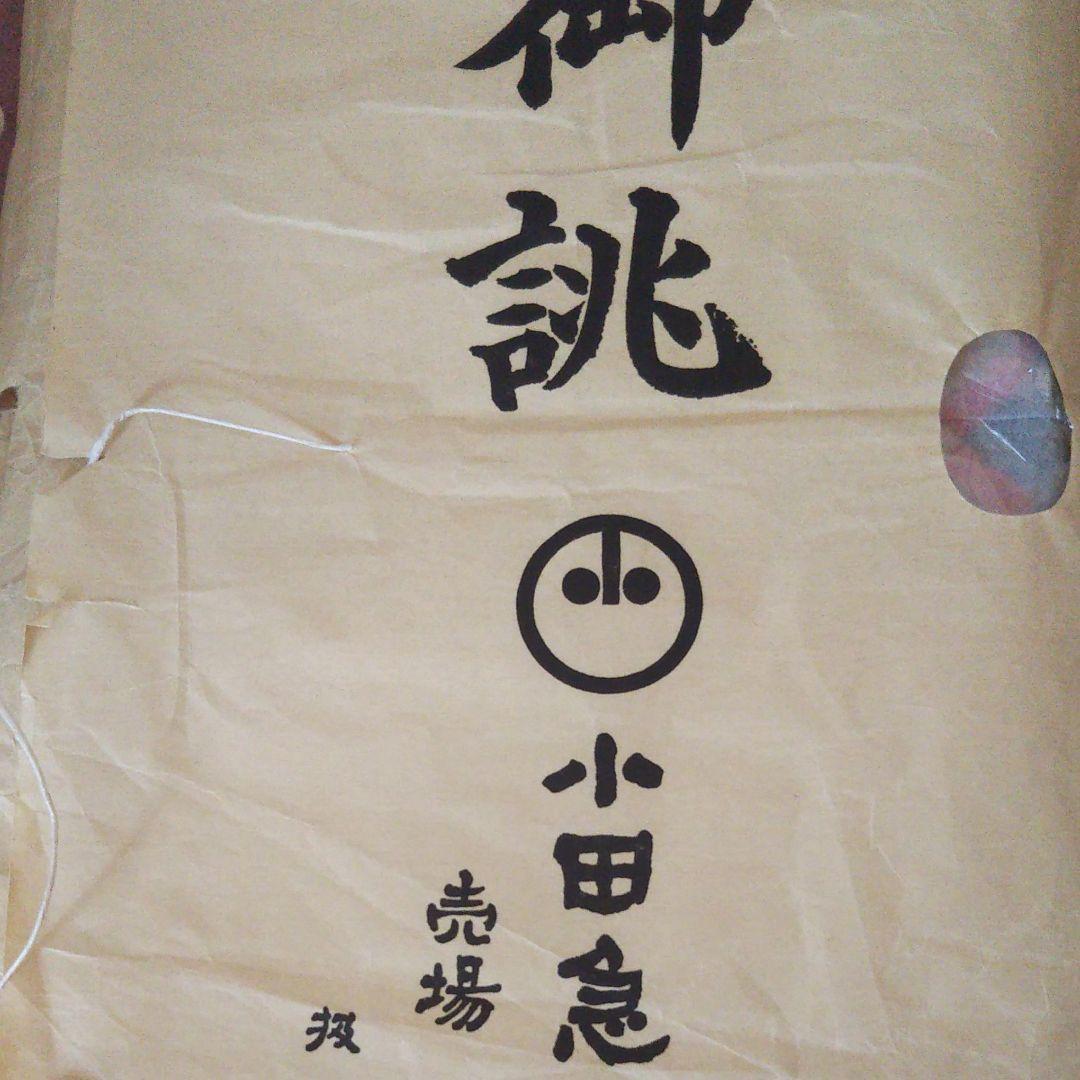 御誂
小田急
売場
扱